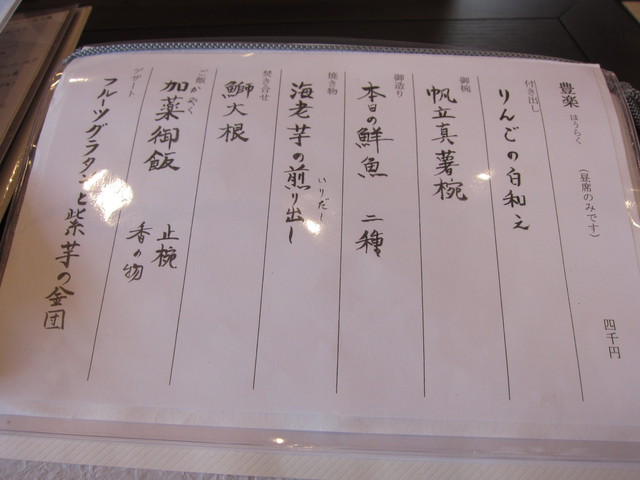 豊楽 ほうらく （昼席のみです） 四千円
付き出し
りんごの白和え
御椀
帆立真薯椀
御造り
本日の鮮魚 二種
焼き物
海老芋の煎り出し
いりだし
焚き合せ
鰤大根
ご飯
かやく
加薬御飯 止椀
香の物
デザート
フルーツグラタンと紫芋の金団